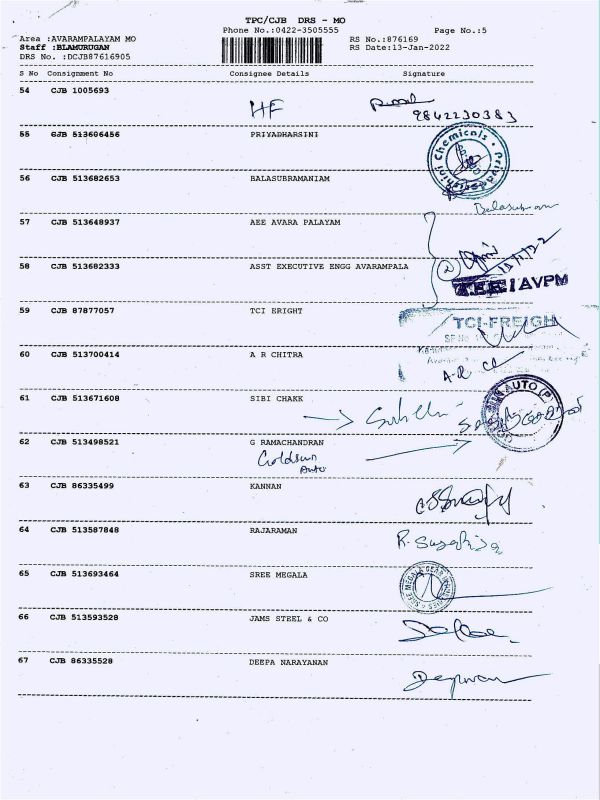 TPC/CJB DRS - MO
Phone No.:0422-3505555 Page No.:5
Area :AVARAMPALAYAM MO RS No.:876169
Staff :BLAMURUGAN RS Date:13-Jan-2022
DRS No. :DCJB87616905
S No Consignment No Consignee Details Signature
54 CJB 1005693
HF
9842230383
55 CJB 513606456 PRIYADHARSINI
56 CJB 513682653 BALASUBRAMANIAM
Balasubram
57 CJB 513648937 AEE AVARA PALAYAM
58 CJB 513682333 ASST EXECUTIVE ENGG AVARAMPALA
AEE/AVPM
59 CJB 87877057 TCI ERIGHT
TCI-FREIGH
60 CJB 513700414 A R CHITRA
61 CJB 513671608 SIBI CHAKK
AUTO (P)
62 CJB 513498521 G RAMACHANDRAN
Goldsun
Auto
63 CJB 86335499 KANNAN
64 CJB 513587848 RAJARAMAN
65 CJB 513693464 SREE MEGALA
66 CJB 513593528 JAMS STEEL & CO
67 CJB 86335528 DEEPA NARAYANAN